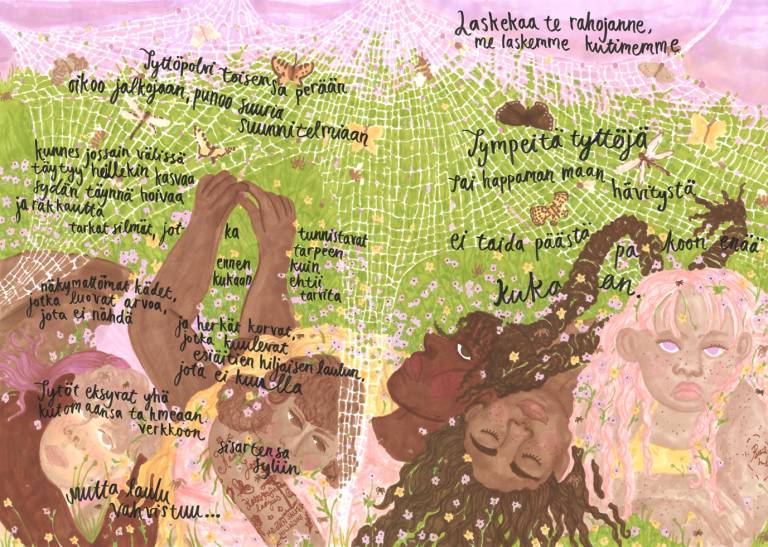 Tyttöpolvi toisensa perään
oikoo jalkojaan, punoo suuria
suunnitelmiaan
kunnes jossain välissä
täytyy heillekin kasvaa
sydän täynnä hoivaa
ja rakkautta
tarkat silmät, jotka tunnistavat
ennen tarpeen
kukaan kuin
ehtii
tarvita
näkymättömät kädet,
jotka luovat arvoa,
jota ei nähdä
ja herkät korvat,
jotka kuulevat
esiäitien hiljaisen laulun,
jota ei kuulla
Tytöt eksyvät yhä
kutomaansa tahmeaan
verkkoon
sisartensa
syliin
mutta laulu
vahvistuu...
Laskekaa te rahojanne,
me laskemme kutimemme
Tympeitä tyttöjä
tai happaman maan hävitystä
ei taida päästä pakoon enää
kukaan.